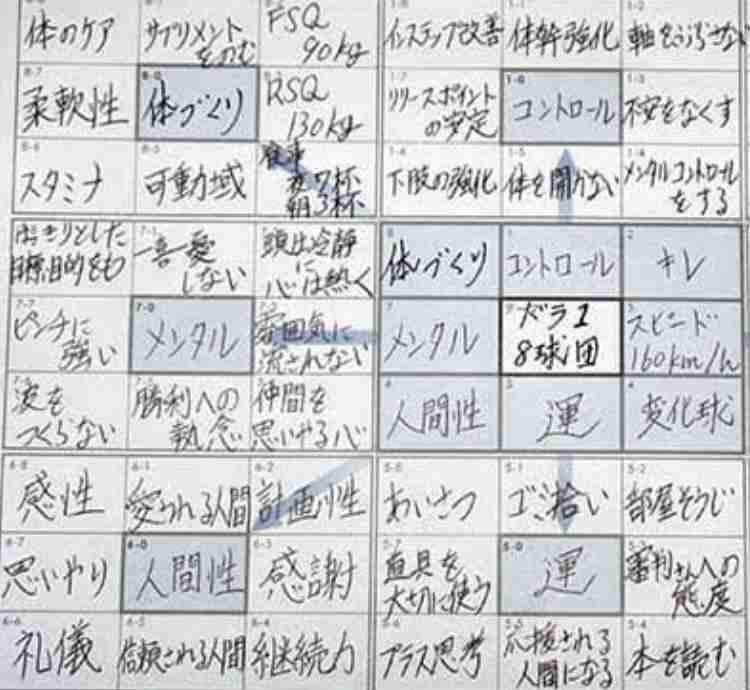 体のケア
サプリメント
をのむ
FSQ
90kg
インステップ改善
体幹強化
軸をぶらさない
柔軟性
体づくり
RSQ
130kg
リリースポイント
の安定
コントロール
不安をなくす
スタミナ
可動域
食事
夜7杯
朝3杯
下肢の強化
体を開かない
メンタルコントロール
をする
はっきりとした
目標、目的をもつ
一喜一憂
しない
頭は冷静に
心は熱く
体づくり
コントロール
キレ
ピンチに
強い
メンタル
雰囲気に
流されない
メンタル
ドラ1
8球団
スピード
160km/h
波を
つくらない
勝利への
執念
仲間を
思いやる心
人間性
運
変化球
感性
愛される人間
計画性
あいさつ
ゴミ拾い
部屋そうじ
思いやり
人間性
感謝
道具を
大切に使う
運
審判さんへの
態度
礼儀
信頼される人間
継続力
プラス思考
応援される
人間になる
本を読む